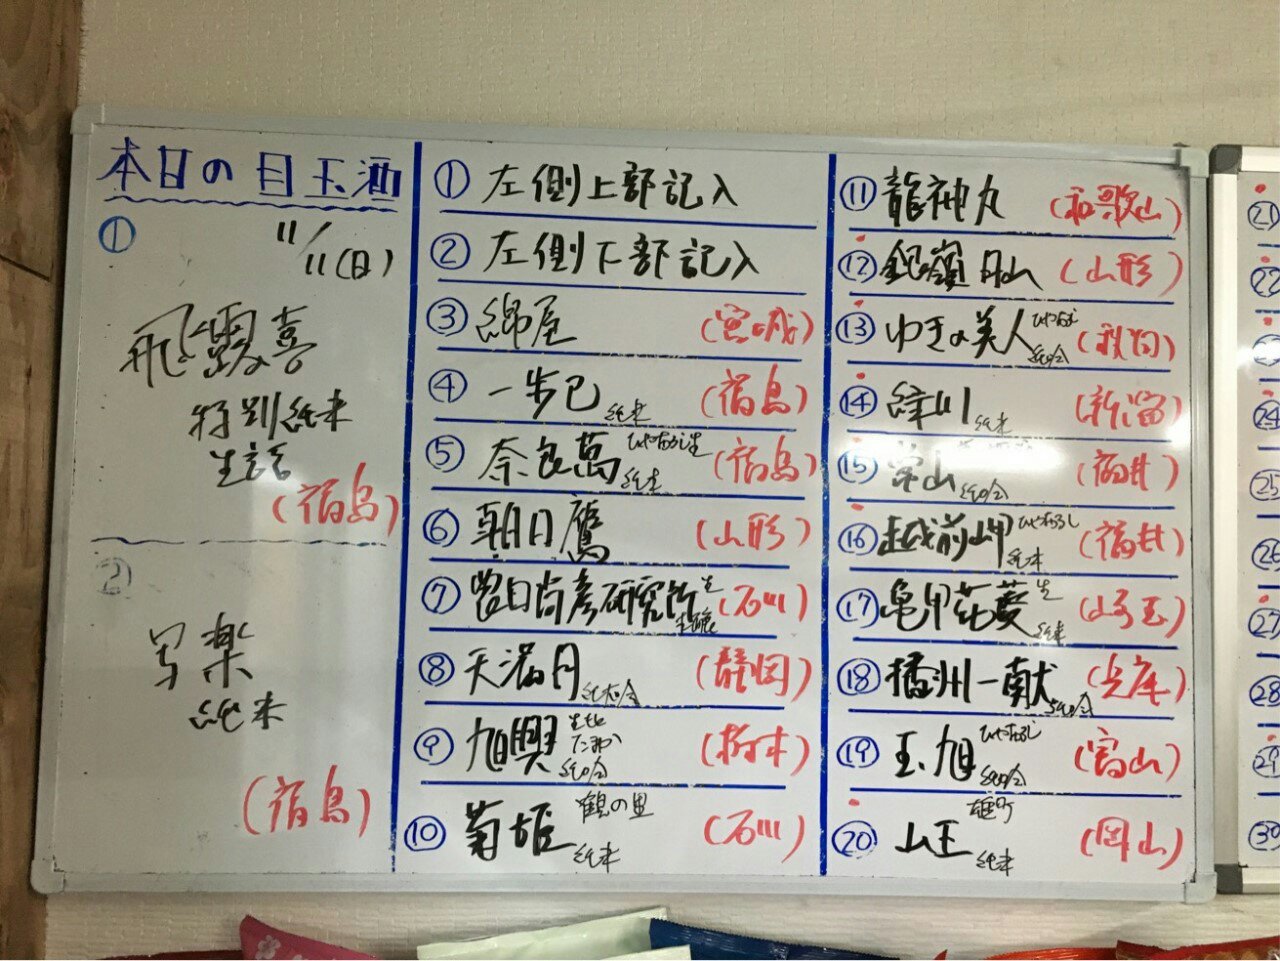 本日の目玉酒
①
11/11(日)
飛露喜
特別純米
生詰
(福島)
②
写楽
純米
(福島)
① 左側上部記入
② 左側下部記入
③ 綿屋 (宮城)
④ 一歩己 純米 (福島)
⑤ 奈良萬 ひやおろし生 純米 (福島)
⑥ 朝日鷹 (山形)
⑦ 農口尚彦研究所 生 (石川)
⑧ 天満月 純大吟 (静岡)
⑨ 旭興 純吟 (栃木)
⑩ 菊姫 鶴の里 純米 (石川)
⑪ 龍神丸 (和歌山)
⑫ 銀嶺月山 (山形)
⑬ ゆきの美人 ひやおろし 純吟 (秋田)
⑭ 純米 (新潟)
⑮ 常山 純吟 (福井)
⑯ 越前岬 ひやおろし 純米 (福井)
⑰ 亀甲花菱 生 純米 (埼玉)
⑱ 播州一献 純吟 (兵庫)
⑲ 玉旭 ひやおろし 純吟 (富山)
⑳ 山王 雄町 純米 (岡山)
21
22
24
25
26
27
28
29
30